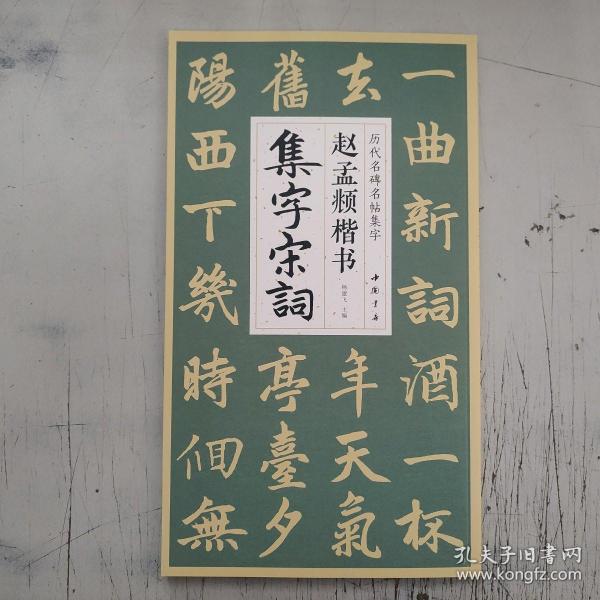 一曲新詞酒一杯
去年天氣
舊亭臺夕
陽西下幾時佪無
历代名碑名帖集字
赵孟𫖯楷书
集字宋詞
杨建飞 主编
中國書店
孔夫子旧书网
www.kongfz.com